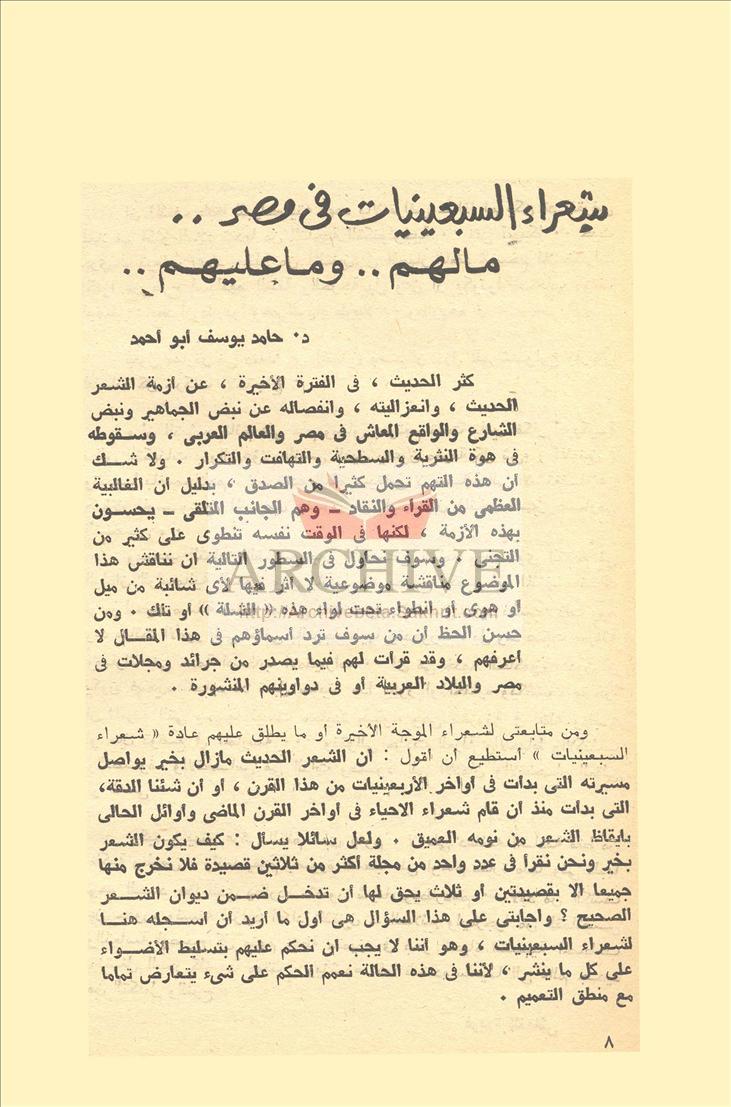 شعراء السبعينيات فى مصر ..
مالهم .. وما عليهم ..
د٠ حامد يوسف أبو أحمد
كثر الحديث ، فى الفترة الأخيرة ، عن أزمة الشعر
الحديث ، وانعزاليته ، وانفصاله عن نبض الجماهير ونبض
الشارع والواقع المعاش فى مصر والعالم العربى ، وسقوطه
فى هوة النثرية والسطحية والتهافت والتكرار ٠ ولا شك
أن هذه التهم تحمل كثيرا من الصدق ، بدليل أن الغالبية
العظمى من القراء والنقاد ـ وهم الجانب المتلقى ـ يحسون
بهذه الأزمة ، لكنها فى الوقت نفسه تنطوى على كثير من
التجنى ٠ وسوف نحاول فى السطور التالية أن نناقش هذا
الموضوع مناقشة موضوعية لا أثر فيها لأى شائبة من ميل
أو هوى أو انطواء تحت لواء هذه « الشلة » أو تلك ٠ ومن
حسن الحظ أن من سوف ترد أسماؤهم فى هذا المقال لا
أعرفهم ، وقد قرأت لهم فيما يصدر من جرائد ومجلات فى
مصر والبلاد العربية أو فى دواوينهم المنشورة ٠
ومن متابعتى لشعراء الموجة الأخيرة أو ما يطلق عليهم عادة « شعراء
السبعينيات » أستطيع أن أقول : ان الشعر الحديث مازال بخير يواصل
مسيرته التى بدأت فى أواخر الأربعينيات من هذا القرن ، أو أن شئنا الدقة،
التى بدأت منذ أن قام شعراء الاحياء فى أواخر القرن الماضى وأوائل الحالى
بايقاظ الشعر من نومه العميق ٠ ولعل سائلا يسأل : كيف يكون الشعر
بخير ونحن نقرأ فى عدد واحد من مجلة أكثر من ثلاثين قصيدة فلا نخرج منها
جميعا الا بقصيدتين أو ثلاث يحق لها أن تدخل ضمن ديوان الشعر
الصحيح ؟ واجابتى على هذا السؤال هى أول ما أريد أن أسجله هنا
لشعراء السبعينيات ، وهو أننا لا يجب أن نحكم عليهم بتسليط الأضواء
على كل ما ينشر ، لأننا فى هذه الحالة نعمم الحكم على شىء يتعارض تماما
مع منطق التعميم ٠
٨
ARCHIVE